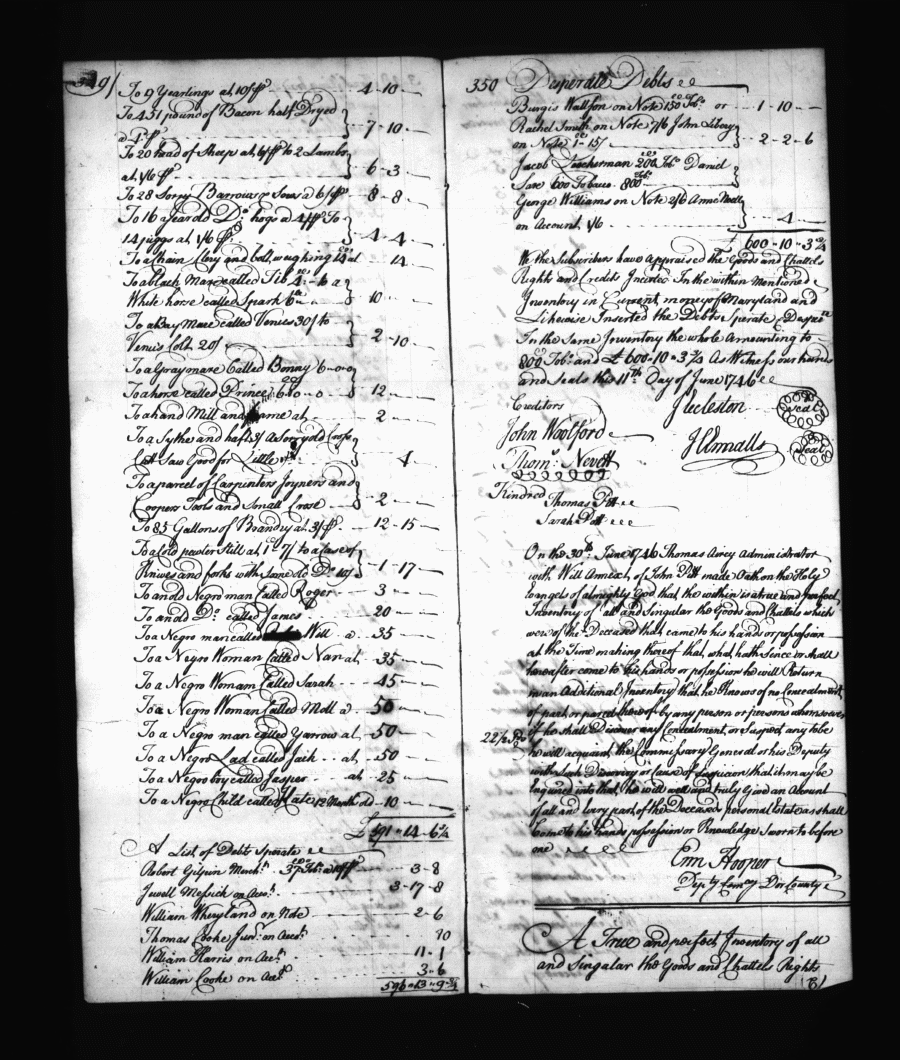 349/
To 9 Yearlings at 10/ pr 4-10-
To 451 pound of Bacon half Dryed
at 4d pr 7-10-
To 20 head of Sheep at 6/ pr to 2 Lambs
at 1/6 pr 6-3-
To 28 Sorry Barrows or Sows a 6/ pr 8-8-
To 16 a Year old Do hogs a 4/ pr To
14 piggs at 1/6 pr 4-4-
To a Chain Clevy and bolt, weighing at 14-
To a black Mare called Tib 4-- to a
White horse called Spark 6-- 10--
To a Bay Mare called Venies 30/ to
Venus Colt 20/ 2-10-
To a Gray mare Called Bonny 6-0-0
To a horse called Prince 6-0-0 12--
To a hand Mill and frame at 2--
To a Sythe and hafts 3/ a Sorry old Cross
Cut Saw Good for Little 4-
To a parcel of Carpenters Joyners and
Coopers Tools and Small Crose 2--
To 85 Gallons of Brandy at 3/ pr 12-15-
To a old pewter Still at 7/ to a case of
Knives and forks with some old Do 10/ 1-17-
To an old Negro man Called Roger 3--
To an old Do called James 20--
To a Negro man called Will a 35--
To a Negro Woman Called Nan at 35--
To a Negro Woman Called Sarah 45--
To a Negro Woman Called Moll a 50--
To a Negro man called Yarrow at 50--
To a Negro Lad called Jack at 50--
To a Negro boy called Jasper at 25--
To a Negro Child called Kate 12 Month old 10--
£ 591-14-6¼
A List of Debts Sperate
Robert Gilpin Mercht 37 Tobo a pr 3-8
Jewell Messick on Acct 3-17-8
William Wheyland on Note 2-6
Thomas Cooke Junr on Acct 10
William Harris on Acct 11-1
William Cooke on Acct 3-6
596-13-9¾
350 Desperate Debts
Burgis Wallson on Note 150 Tobo or 1-10-
Rachel Smith on Note 7/6 John
on Note 1-15/ 2-2-6
Jacob 200 Tobo Daniel
Saxe 600 Tobacco 800 Tobo
George Williams on Note 2/6 Anne Noell
on Account 1/6 4-
£ 600-10-3¾
We the Subscribers have Appraised The Goods and Chattels
Rights and Credits Incerted In the within Mentioned
Inventory in Current money of Maryland and
Likewise Inserted the Debts Sperate & Desperate
In the Same Inventory the whole Amounting to
800 Tobo and £ 600-10-3¾ As Witness our hands
and Seals this 11th Day of June 1746
Creditors J Eccleston Seal
John Woolford J Ennalls Seal
Thoms Nevett
Kindred Thomas Pitt
Sarah Pitt
On the 30th June 1746 Thomas Airey administrator
with Will Annext of John Pitt made Oath on the Holy
Evangels of almighty God that the within is a true and perfect
Inventory of all and Singular the Goods and Chattels which
were of the Deceased that came to his hands or possession
at the Time making thereof that what hath Since or shall
hereafter come to his hands or possession he will Return
in an Additional Inventory that he Knows of no Concealment
of part or parcel thereof by any person or persons whomsoever
if he shall Discover any Concealment, or Suspect any to be
he will acquaint the Commissary General or his Deputy
with Such Discovery or Cause of Suspicion that it may be
Inquired into that he will well and truly Give an Account
of all and Every part of the Deceased personal Estate as shall
Come to his hands possession or Knowledge Sworn to before
me
Enn Hooper
Depty Comry Dor County
A True and perfect Inventory of all
and Singular the Goods and Chattels Rights